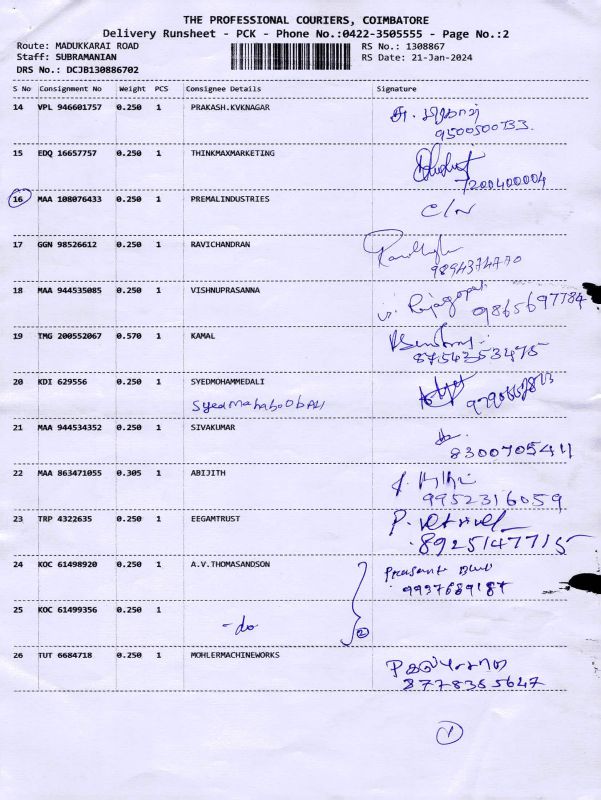 THE PROFESSIONAL COURIERS, COIMBATORE
Delivery Runsheet - PCK - Phone No.:0422-3505555 - Page No.:2
Route: MADUKKARAI ROAD RS No.: 1308867
Staff: SUBRAMANIAN RS Date: 21-Jan-2024
DRS No.: DCJB130886702
S No Consignment No Weight PCS Consignee Details Signature
14 VPL 946601757 0.250 1 PRAKASH.KVKNAGAR
15 EDQ 16657757 0.250 1 THINKMAXMARKETING
7200400004
16 MAA 108076433 0.250 1 PREMALINDUSTRIES
17 GGN 98526612 0.250 1 RAVICHANDRAN
18 MAA 944535085 0.250 1 VISHNUPRASANNA
Rajagopal
9865697784
19 TMG 200552067 0.570 1 KAMAL
8754353475
20 KDI 629556 0.250 1 SYEDMOHAMMEDALI
SyedmahaboobAli
21 MAA 944534352 0.250 1 SIVAKUMAR
8300705411
22 MAA 863471055 0.305 1 ABIJITH
9952316059
23 TRP 4322635 0.250 1 EEGAMTRUST
P.
8925147715
24 KOC 61498920 0.250 1 A.V.THOMASANDSON
9937689187
25 KOC 61499356 0.250 1
-do 2
26 TUT 6684718 0.250 1 MOHLERMACHINEWORKS
8778385647
1